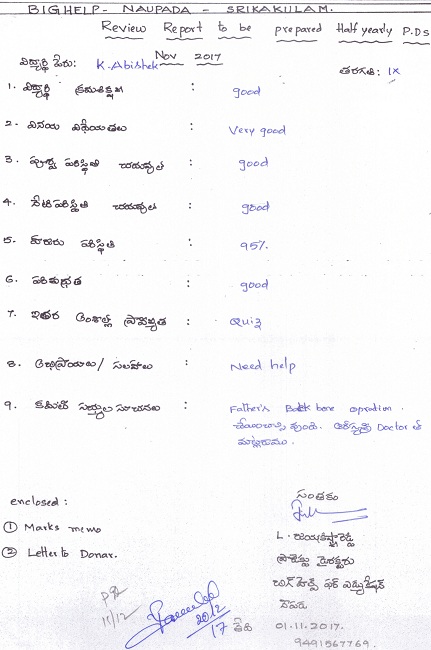 BIGHELP - NAUPADA - SRIKAKULAM.
Review Report to be prepared Half yearly P.Ds
Nov 2017
విద్యార్థి పేరు: K. Abishek తరగతి: IX
1. విద్యార్థి క్రమశిక్షణ : good
2. వినయ విధేయతలు : Very good
3. పూర్వ పరిస్థితి : good
4. నేటి పరిస్థితి : good
5. హాజరు పరిస్థితి : 95%
6. పరిశుభ్రత : good
7. ఇతర అంశాల్లో ప్రావీణ్యత : Quiz
8. అభిప్రాయాలు / సలహాలు : Need help
9. కమిటీ సభ్యుల సూచనలు : Father's Back bone opration.
చేయించాల్సి వుంది. Doctor తో
enclosed : సంతకం
① Marks memo L.
② Letter to Donar. ప్రాజెక్టు డైరెక్టరు
బిగ్ హెల్ప్ ఫర్ ఎడ్యుకేషన్
11/12 20/12/17 తేది 01.11.2017.
9491567769.